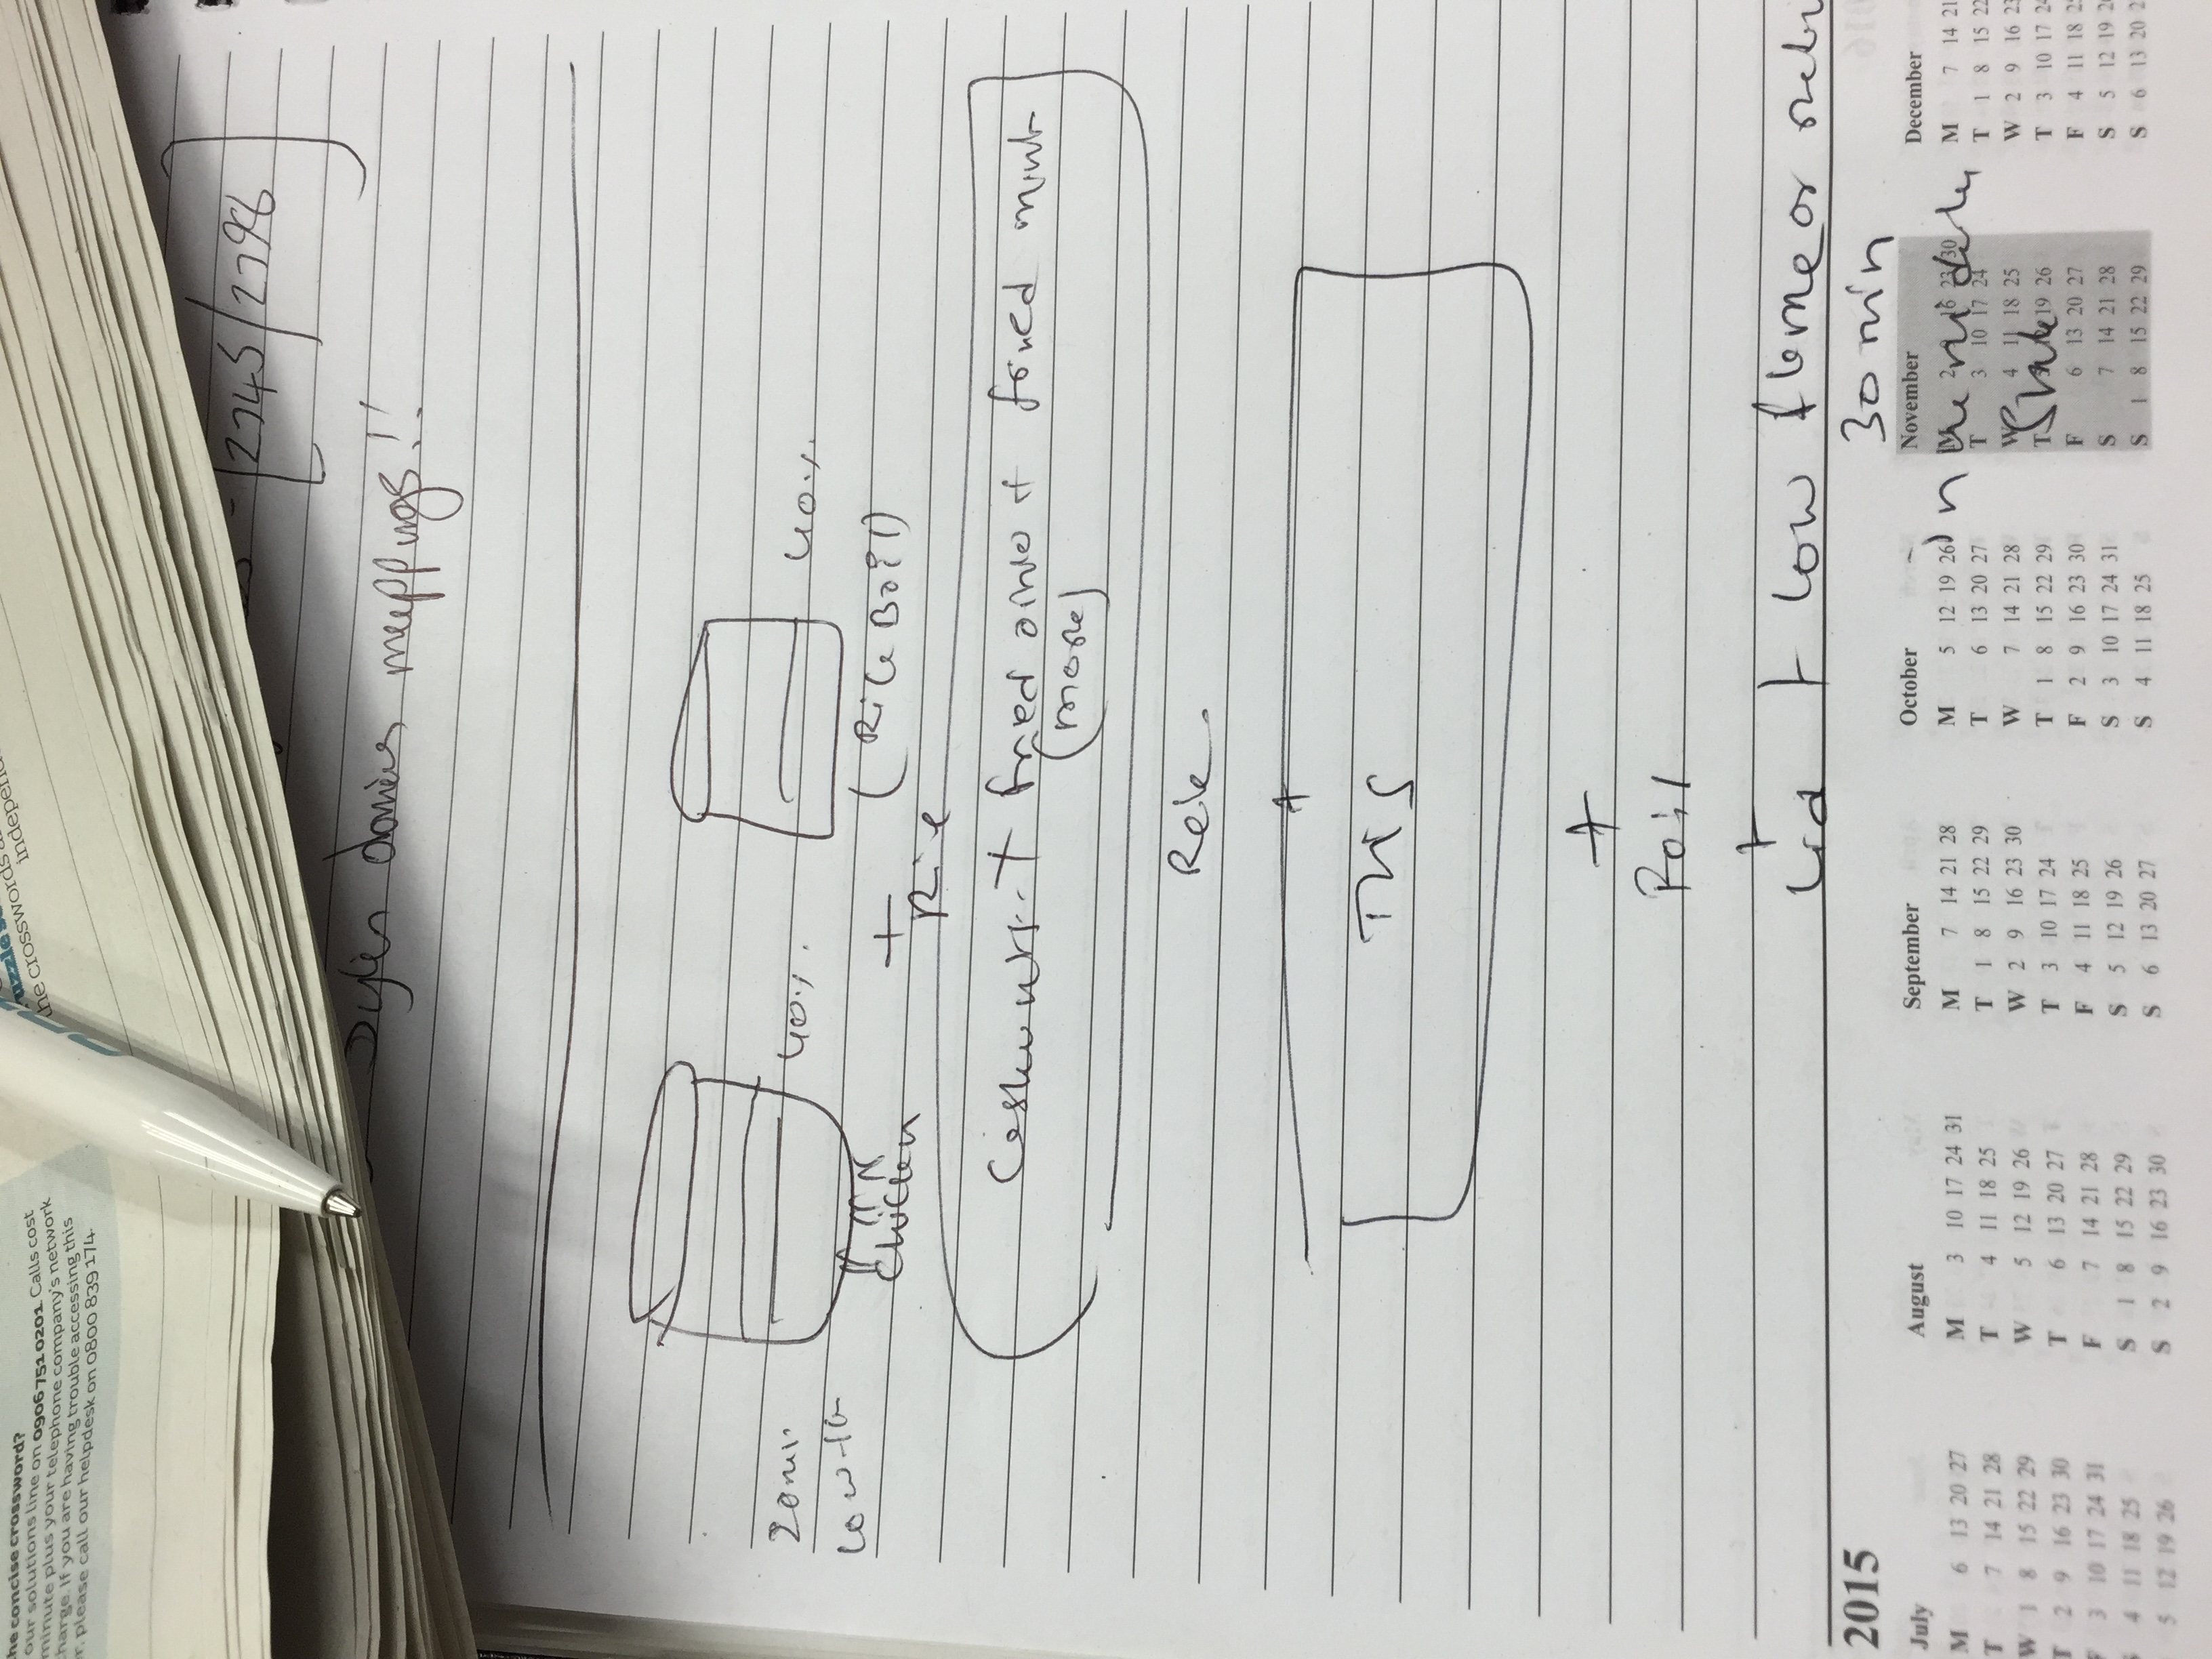 he concise crossword?
our solutions line on 0906 751 0201. Calls cost
minute plus your telephone company's network
harge. If you are having trouble accessing this
r. please call our helpdesk on 0800 839 174.
he crosswords
independen
[2745/2796]
meppings!!
40%. 40%.
low
chicken + (Rice Boil)
Rice
Cashewnut + fried onion + fried mint
(more)
+
THIS
+
Foil
+
Lid + Low flame or
30 min
in the middle
2015
July August September October November December
M 6 13 20 27 M 3 10 17 24 31 M 7 14 21 28 M 5 12 19 26 M 2 16 23 30 M 7 14 21
T 7 14 21 28 T 4 11 18 25 T 1 8 15 22 29 T 6 13 20 27 T 3 10 17 24 T 1 8 15 22
W 1 8 15 22 29 W 5 12 19 26 W 2 9 16 23 30 W 7 14 21 28 W 4 11 18 25 W 2 9 16 23
T 2 9 16 23 30 T 6 13 20 27 T 3 10 17 24 T 1 8 15 22 29 T 19 26 T 3 10 17 24
F 3 10 17 24 31 F 7 14 21 28 F 4 11 18 25 F 2 9 16 23 30 F 6 13 20 27 F 4 11 18
S 4 11 18 25 S 1 8 15 22 29 S 5 12 19 26 S 3 10 17 24 31 S 7 14 21 28 S 5 12 19
S 5 12 19 26 S 2 9 16 23 30 S 6 13 20 27 S 4 11 18 25 S 1 8 15 22 29 S 6 13 20